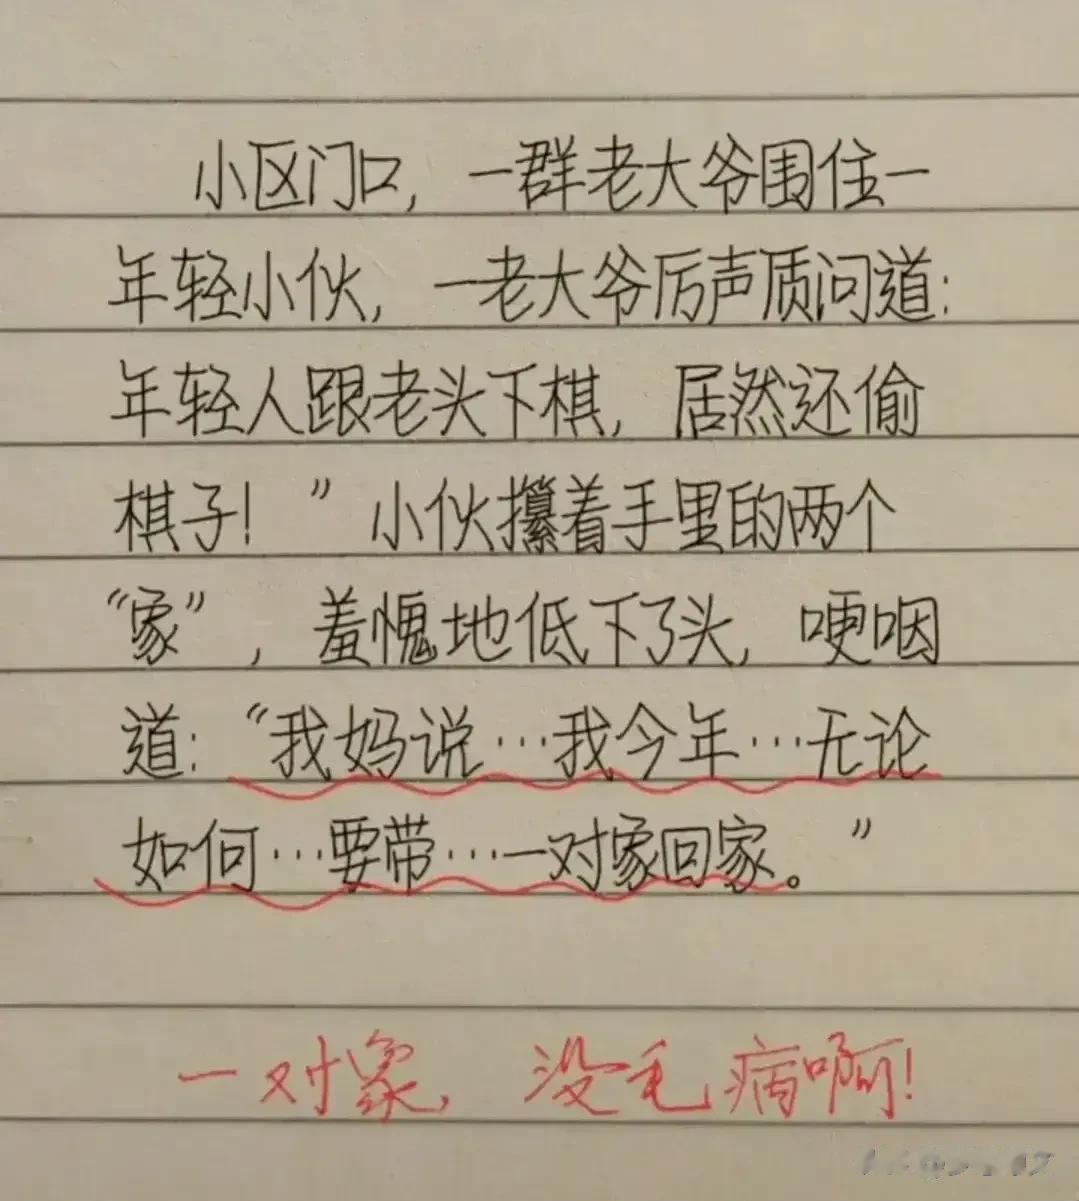 小区门口，一群老大爷围住一
年轻小伙，一老大爷厉声质问道：
年轻人跟老头下棋，居然还偷
棋子！”小伙攥着手里的两个
“象”，羞愧地低下了头，哽咽
道：“我妈说…我今年…无论
如何…要带…一对象回家。”
一对象，没毛病啊！